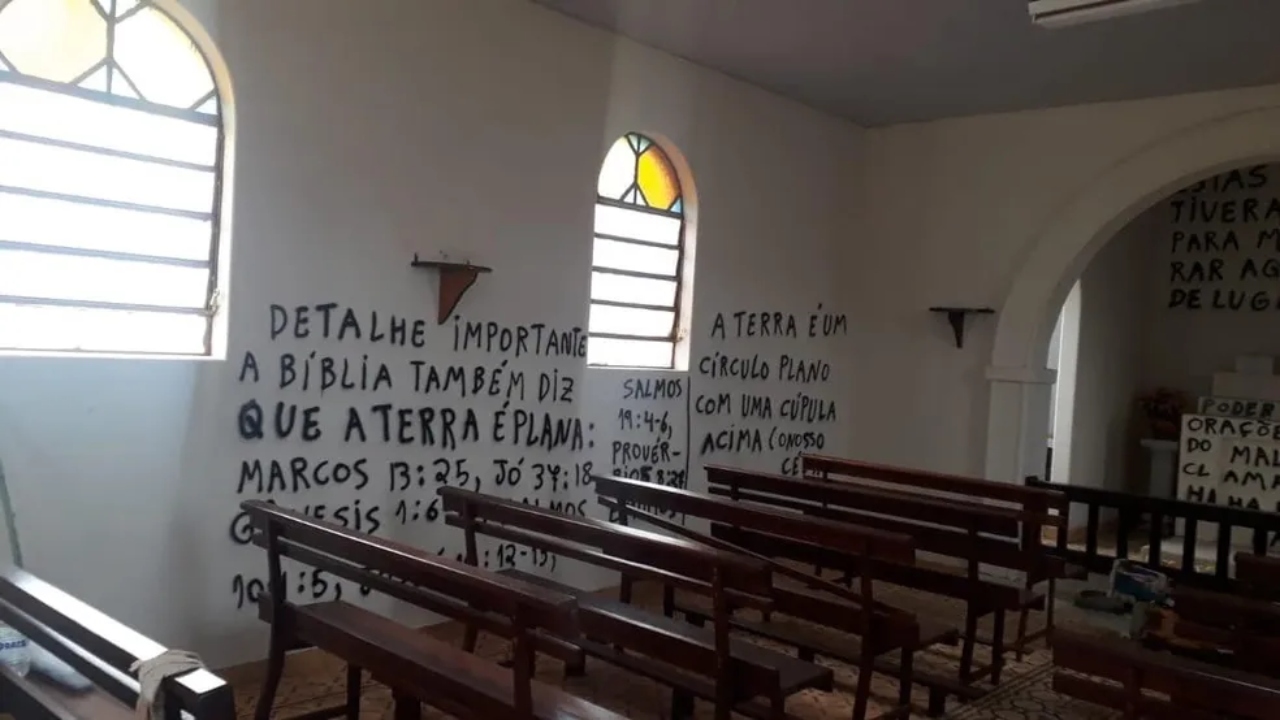 DETALHE IMPORTANTE
A BÍBLIA TAMBÉM DIZ
QUE A TERRA É PLANA:
MARCOS 13:25, JÓ 37:18
1:6
:12-13,
SALMOS
19:4-6,
PROVÉR-
A TERRA É UM
CÍRCULO PLANO
COM UMA CÚPULA
ACIMA (O NOSSO
TIVERA
PARA M
RAR AG
DE LUG
PODER
ORAÇÕE
DO MAL
HA HA